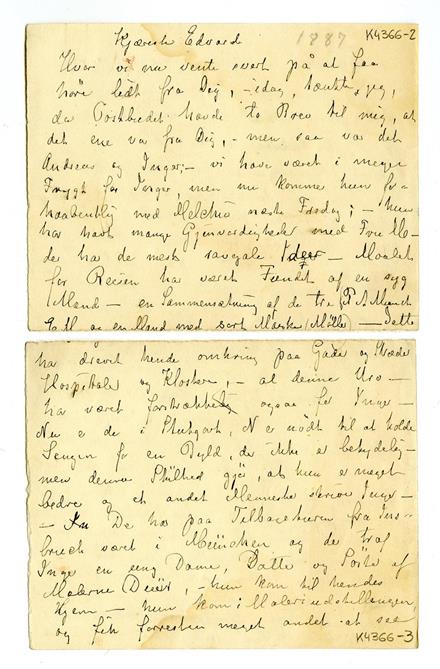 K4366-2
1887
Kjæreste Edvard
Hvor vi nu vente svert på at faa
høre lidt fra Dig, – idag, tænkte jeg,
da Postbudet havde to Brev til mig, at
det ene var fra Dig, – men saa var det
Andreas og Inger; – vi have været i megen
Frygt for Inger men nu kommer hun for-
haabentlig med Melchior næste Fredag; – hun
har havt mange Gjenvordigheder med Fru
der har de mest Ideer – Maalet
for Reisen har været Fundet af en syg
Mand – en Sammensætning af de tre P. A Munch
E. M og en Mand med sort Maske (Møller) – Dette
har drevet hende omkring paa Gader og Stræder
Hospitaler og Klostere, – at denne Uro –
har været forstrækkelig ogsaa for Inger –
Nu er de i Stutgart, N er nødt til at holde
Sengen for en Byld, der ikke er betydelig –
men denne Stilhed gjør, at hun er meget
bedre og et andet Menneske skriver Inger –
– De har paa Tilbageturen fra Ins-
bruck været i München og de traf
Inger en ung Dame, Datter og Søster af
Malerne – hun kom til hendes
Hjem – hun kom i Maleriudstillingen
og fik forresten meget andet at see
K4366-3